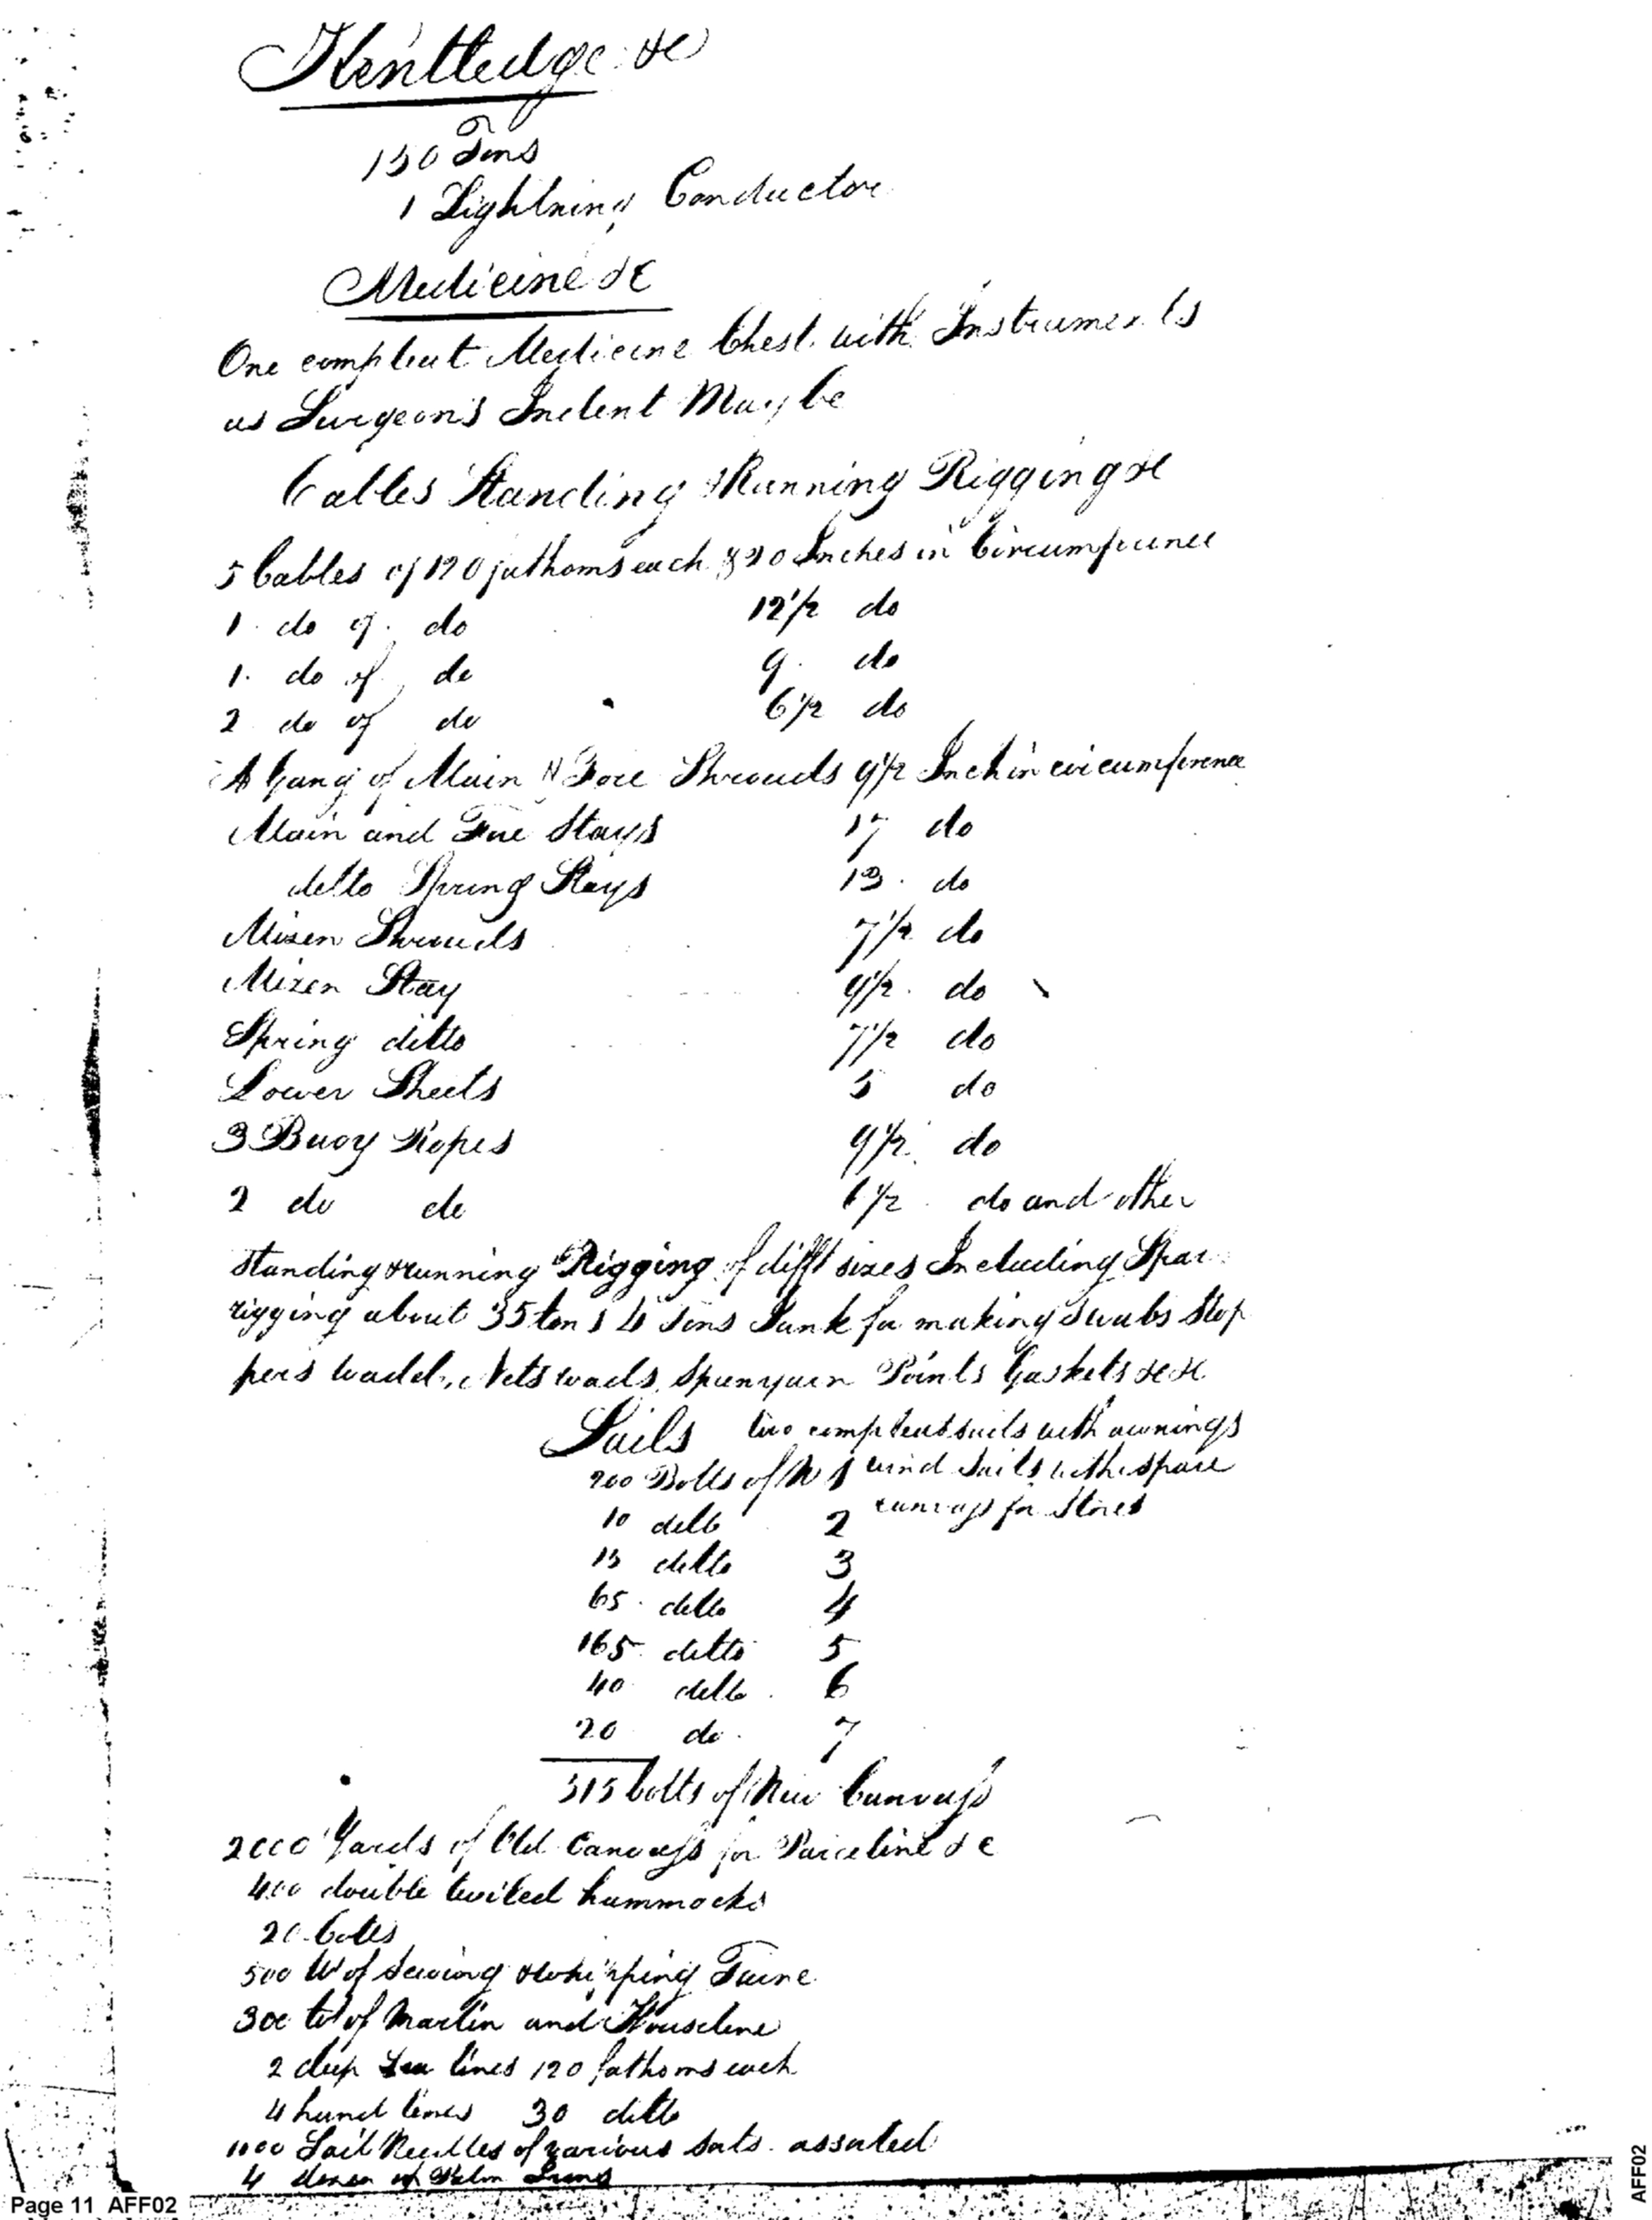 Kentledge &c
150 Tons
1 Lightning Conductor
Medicine &c
One compleat Medicine Chest with Instruments
as Surgeon's Indent May be
Cables Standing & Running Rigging &c
5 Cables of 120 fathoms each & 20 Inches in Circumference
1 do of do 12 1/2 do
1 do of do 9 do
2 do of do 6 1/2 do
A Gang of Main & Fore Shrouds 9 1/2 Inch in circumference
Main and Fore Stays 17 do
ditto Spring Stays 13 do
Mizen Shrouds 7 1/2 do
Mizen Stay 9 1/2 do
Spring ditto 7 1/2 do
Lower Sheets 5 do
3 Buoy Ropes 9 1/2 do
2 do do 6 1/2 do and other
Standing & running Rigging of difft sizes Including Spar
rigging about 35 tons 4 Tons Junk for making Swabs Stop
pers Nets wads Spunyarn Points Gaskets &c &c
Sails two compleat sails with awnings
200 Bolts of No 1 wind Sails with spare
10 ditto 2 canvass for Stores
15 ditto 3
65 ditto 4
165 ditto 5
40 ditto 6
20 do 7
515 bolts of New Canvass
2000 Yards of Old Canvass for Parceline &c
400 double twilled hammocks
20 Cotts
500 lb of Sewing & whipping Twine
300 lb of Marlin and Houseline
2 deep Sea lines 120 fathoms each
4 hand lines 30 ditto
1000 Sail Needles of various sorts assorted
4 dozen of Palm Irons
Page 11 AFF02
AFF02